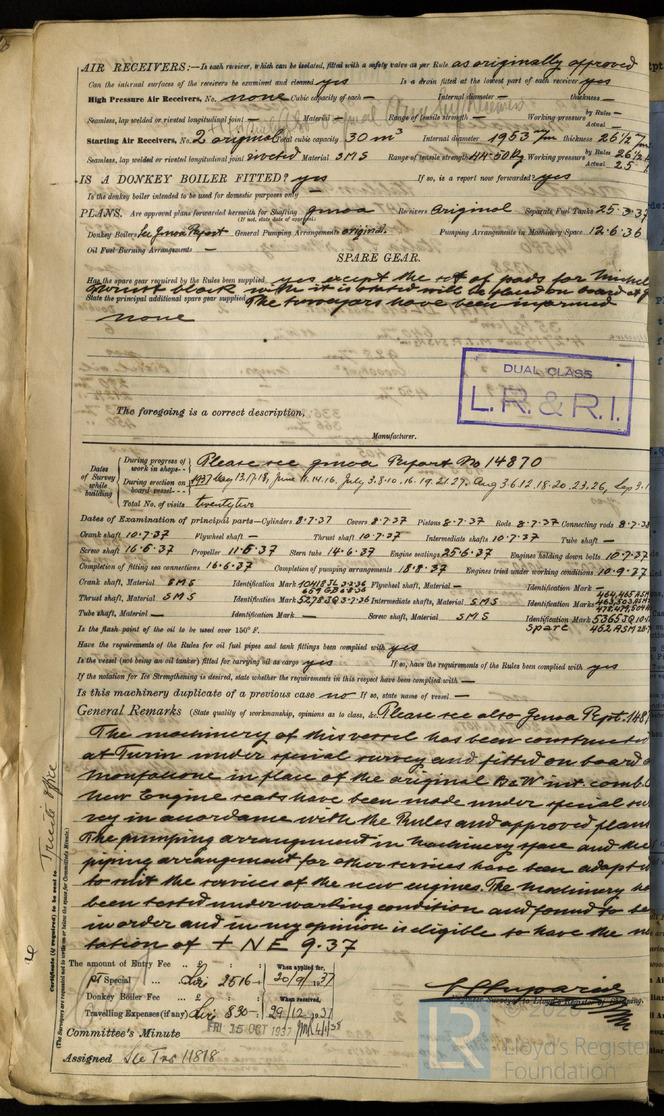 AIR RECEIVERS:—Is each receiver, which can be isolated, fitted with a safety valve as per Rule as originally approved
Can the internal surfaces of the receivers be examined and cleaned yes Is a drain fitted at the lowest part of each receiver yes
High Pressure Air Receivers, No. none Cubic capacity of each — Internal diameter — thickness —
Seamless, lap welded or riveted longitudinal joint — Material — Range of tensile strength — Working pressure by Rules — Actual —
Starting Air Receivers, No. 2 original Total cubic capacity 30 m³ Internal diameter 1953 m/m thickness 26½ m/m
Seamless, lap welded or riveted longitudinal joint riveted Material SMS Range of tensile strength 44-50 kg Working pressure by Rules 26½ Actual 25
IS A DONKEY BOILER FITTED? yes If so, is a report now forwarded? yes
Is the donkey boiler intended to be used for domestic purposes only —
PLANS. Are approved plans forwarded herewith for Shafting genoa Receivers Original Separate Fuel Tanks 25.3.37
(If not, state date of approval)
Donkey Boilers See Genoa Report General Pumping Arrangements original. Pumping Arrangements in Machinery Space 12.6.36
Oil Fuel Burning Arrangements —
SPARE GEAR.
Has the spare gear required by the Rules been supplied yes except the set of pads for Michel
thrust block with it is stated will be placed on board at
State the principal additional spare gear supplied The surveyors have been informed
none
DUAL CLASS
L.R. & R.I.
The foregoing is a correct description,
Manufacturer.
Dates of Survey while building
During progress of work in shops - - Please see genoa Report No 14870
During erection on board vessel - - 1937 May 13.17.18, June 11.14.16. July 3.8.10.16.19.21.27. Aug 3.6.12.18.20.23.26, Sep 3.1
Total No. of visits twentytwo
Dates of Examination of principal parts—Cylinders 8.7.37 Covers 8.7.37 Pistons 8.7.37 Rods 8.7.37 Connecting rods 8.7.3
Crank shaft 10.7.37 Flywheel shaft — Thrust shaft 10.7.37 Intermediate shafts 10.7.37 Tube shaft —
Screw shaft 16.5.37 Propeller 11.5.37 Stern tube 14.6.37 Engine seatings 25.6.37 Engines holding down bolts 10.7.37
Completion of fitting sea connections 16.6.37 Completion of pumping arrangements 18.8.37 Engines tried under working conditions 10.9.37
Crank shaft, Material SMS Identification Mark Flywheel shaft, Material — Identification Mark —
Thrust shaft, Material SMS Identification Mark Intermediate shafts, Material SMS Identification Marks
Tube shaft, Material — Identification Mark — Screw shaft, Material SMS Identification Mark 5365 JQ
Is the flash point of the oil to be used over 150° F. spare 462 ASM
Have the requirements of the Rules for oil fuel pipes and tank fittings been complied with yes
Is the vessel (not being an oil tanker) fitted for carrying oil as cargo yes If so, have the requirements of the Rules been complied with yes
If the notation for Ice Strengthening is desired, state whether the requirements in this respect have been complied with —
Is this machinery duplicate of a previous case no If so, state name of vessel —
General Remarks (State quality of workmanship, opinions as to class, &c. Please see also Genoa Rept. 148
The machinery of this vessel has been constructed
at Turin under special survey and fitted on board
Monfalcone in place of the original B&W int. comb.
New Engine seats have been made under special sur
vey in accordance with the Rules and approved plans
The pumping arrangement in machinery space and the
piping arrangement for other services have been adapted
to suit the services of the new engines. The machinery ha
been tested under working condition and found to be
in order and in my opinion is eligible to have the no
tation of + NE 9.37
Certificate (if required) to be sent to Trieste Office
(The Surveyors are requested not to write on or below the space for Committee's Minute.)
The amount of Entry Fee .. £ : : When applied for,
Special ... Lire 2516 : 20/9/1937
Donkey Boiler Fee ... £ : : When received,
Travelling Expenses (if any) Lire 830 : 29/12/1937
Surveyor to Lloyd's Register of Shipping.
Committee's Minute FRI 15 OCT 1937
Assigned See Trs 11818
© 20
LR
Lloyd's Register
Foundation